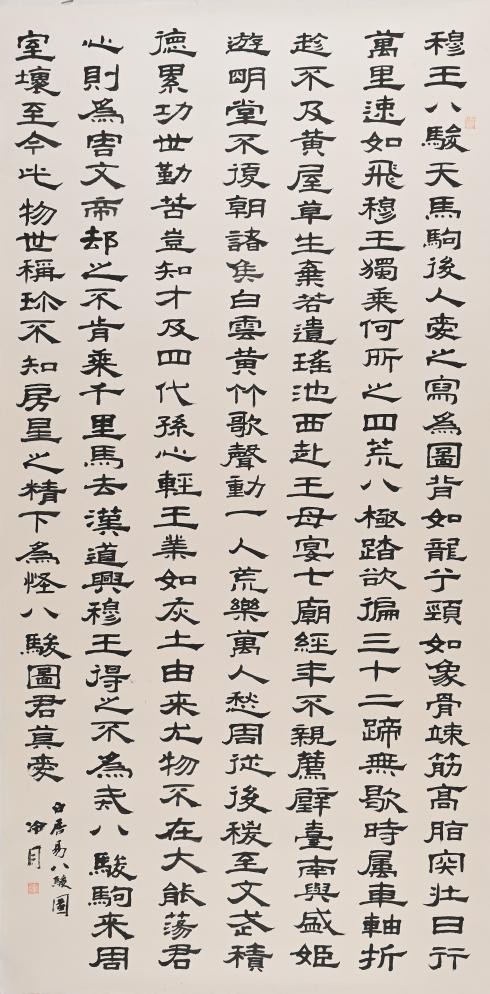 穆王八駿天馬駒後人愛之寫為圖背如龍兮頸如象骨竦筋高脂肉壯日行
萬里速如飛穆王獨乘何所之四荒八極踏欲徧三十二蹄無歇時屬車軸折
趁不及黃屋草生棄若遺瑤池西赴王母宴七廟經年不親薦璧臺南與盛姬
遊明堂不復朝諸侯白雲黃竹歌聲動一人荒樂萬人愁周從後稷至文武積
德累功世勤苦豈知才及四代孫心輕王業如灰土由來尤物不在大能蕩君
心則為害文帝却之不肯乘千里馬去漢道興穆王得之不為戒八駿駒來周
室壞至今此物世稱珍不知房星之精下為怪八駿圖君莫愛
白居易八駿圖